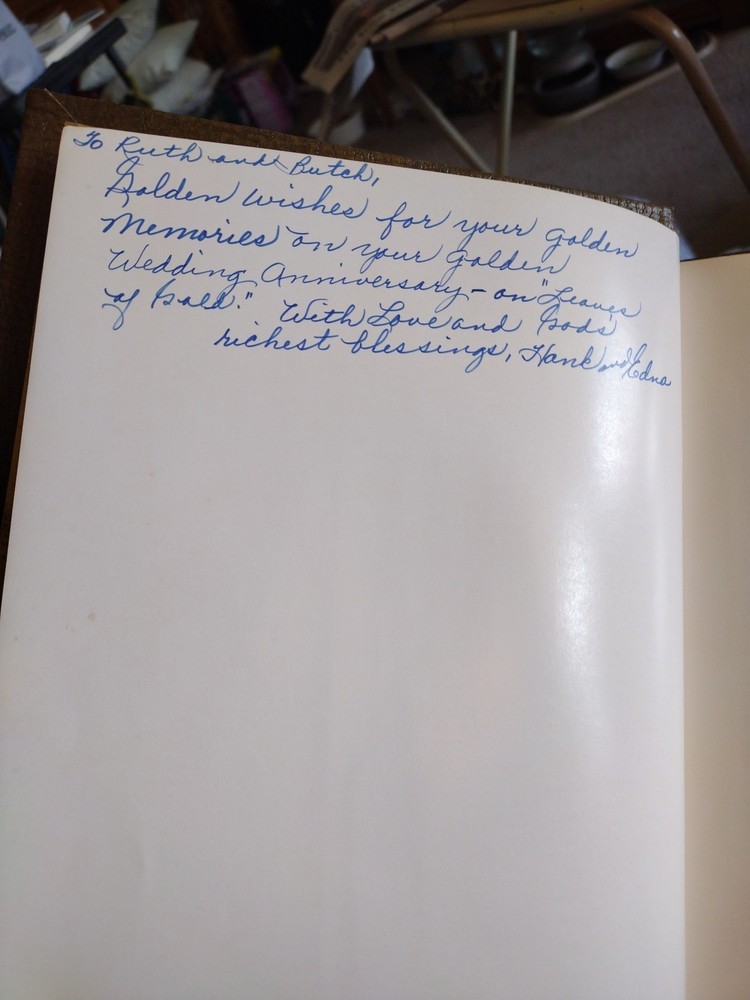 To Ruth and Butch,
Golden wishes for your golden
Memories on your golden
Wedding Anniversary - on "Leaves
of Gold." With Love and Gods
richest blessings, Hank and Edna